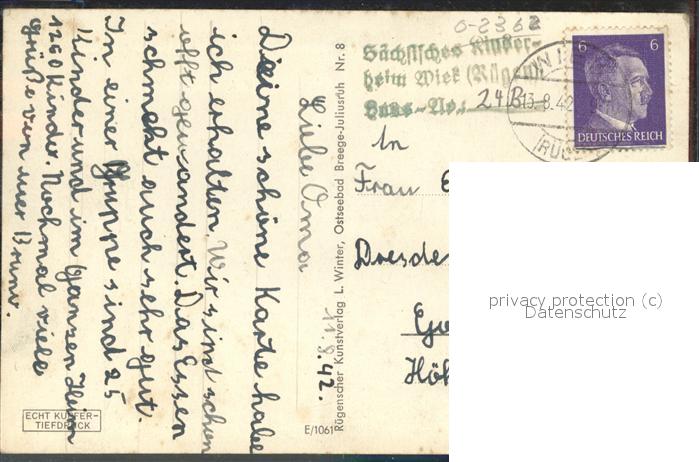 11.8.42.
Liebe Oma
Deine schöne Karte habe
ich erhalten. Wir sind schon
oft gewandert. Das Essen
schmeckt auch sehr gut.
In einer Gruppe sind 25
Kinder und im ganzen Heim
1260 Kinder. Nochmal viele
Grüße von
ECHT KUPFER-
TIEFDRUCK
E/1061
Rügenscher Kunstverlag L. Winter, Ostseebad Breege-Juliusruh Nr. 8
0-2362
Sächsisches Kinder-
heim Wiek (Rügen)
Haus-No: 24B
13.8.42
(RÜGEN)
6 6
DEUTSCHES REICH
An
Frau
Dresden
privacy protection (c)
Datenschutz